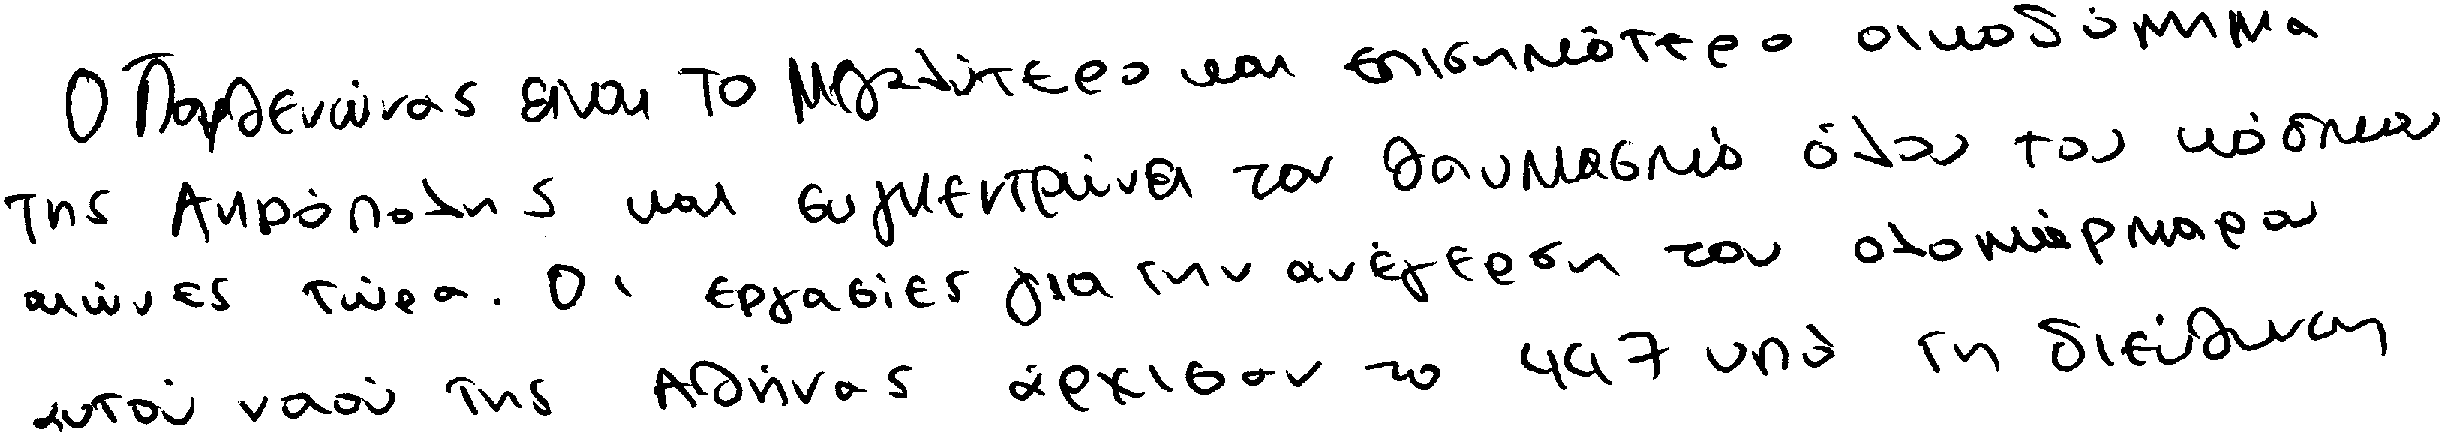 Ο Παρθενώνας είναι το μεγαλύτερο και επισημότερο οικοδόμημα
της Ακρόπολης και συγκεντρώνει τον θαυμασμό όλου του κόσμου
αιώνες τώρα. Οι εργασίες για την ανέγερση του ολομάρμαρου
αυτού ναού της Αθήνας άρχισαν το 447 υπό τη διεύθυνση